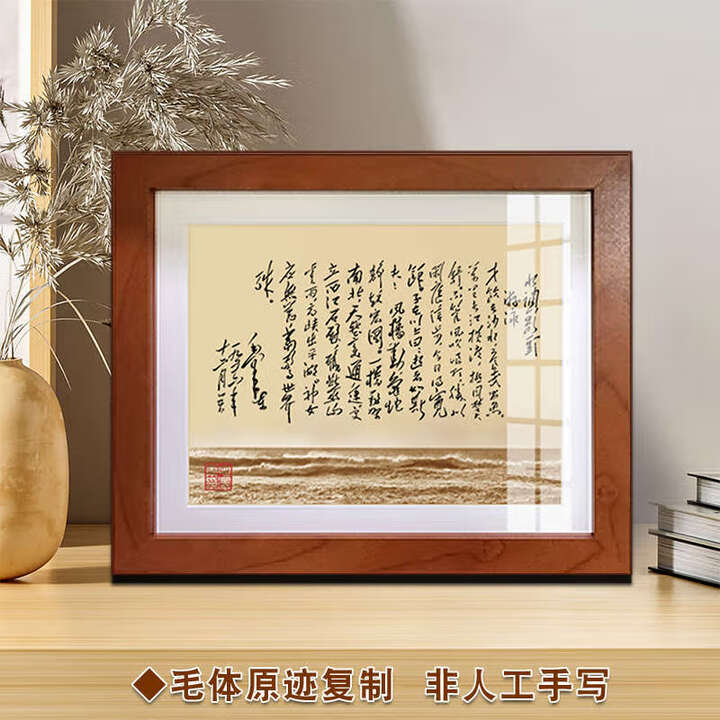 水调歌头
游泳
才饮长沙水又食武昌鱼
万里长江横渡极目楚天
舒不管风吹浪打胜似
闲庭信步今日得宽
馀子在川上曰逝者如斯
夫
风樯动龟蛇
静起宏图一桥飞架
南北天堑变通途更
立西江石壁截断巫山
云雨高峡出平湖神女
应无恙当惊世界
殊
毛泽东
一九五六年
十二月五日
◆毛体原迹复制 非人工手写